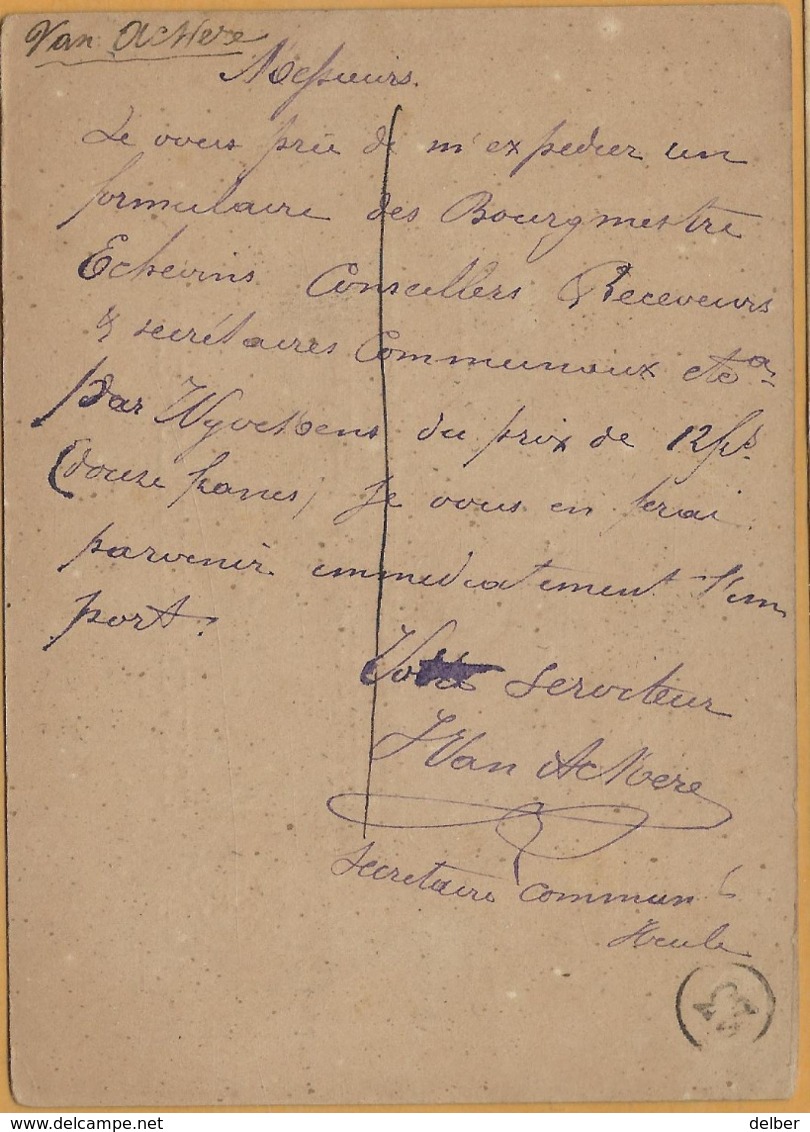 Van Ackere
Messieurs.
Je vous prie de m'expedier un
formulaire des Bourgmestre
Echevins Conseillers Receveurs
& secrétaires Communaux etca
par Wyvekens du prix de 12 frs
(douze francs) Je vous en ferai
parvenir immediatement l'im
port.
Votre serviteur
Van Ackere
secretaire communl
Heule
delcampe.net
delber